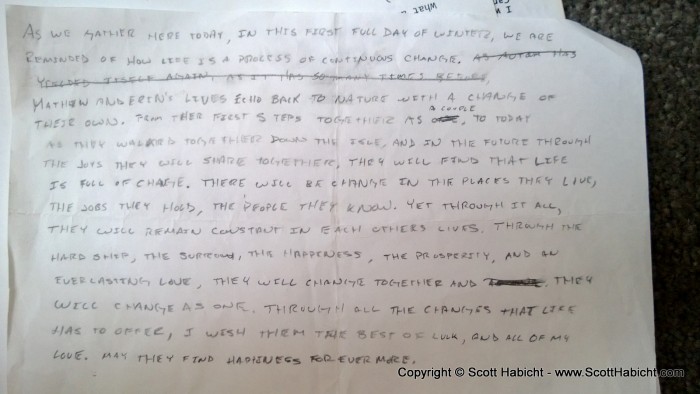 I W
Can
what
AS WE GATHER HERE TODAY, IN THIS FIRST FULL DAY OF WINTER, WE ARE
REMINDED OF HOW LIFE IS A PROCESS OF CONTINUOUS CHANGE. AS AUTAM HAS
YEILDED ITSELF AGAIN, AS IT HAS SO MANY TIMES BEFORE,
MATHEW AND ERIN'S LIVES ECHO BACK TO NATURE WITH A CHANGE OF
THEIR OWN. FROM THER FIRST STEPS TOGETHER AS A COUPLE, TO TODAY
AS THEY WALKED TOGETHER DOWN THE ISLE, AND IN THE FUTURE THROUGH
THE JOYS THEY WILL SHARE TOGETHER, THEY WILL FIND THAT LIFE
IS FULL OF CHANGE. THERE WILL BE CHANGE IN THE PLACES THEY LIVE,
THE JOBS THEY HOLD, THE PEOPLE THEY KNOW. YET THROUGH IT ALL,
THEY WILL REMAIN CONSTANT IN EACH OTHERS LIVES. THROUGH THE
HARD SHIP, THE SURROW, THE HAPPENESS, THE PROSPERITY, AND AN
EVERLASTING LOVE, THEY WILL CHANGE TOGETHER AND THEY
WILL CHANGE AS ONE. THROUGH ALL THE CHANGES THAT LIFE
HAS TO OFFER, I WISH THEM THE BEST OF LUCK, AND ALL OF MY
LOVE. MAY THEY FIND HAPPINESS FOR EVER MORE.
Copyright © Scott Habicht - www.ScottHabicht.com